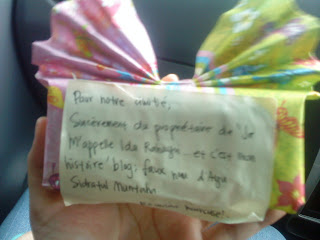 Pour notre amitié,
Sincèrement du propriétaire de 'Je
M'appelle Ida Rahayu ... et c'est mon
histoire' blog; faux nom d'Ayu
Sidratul Muntaha